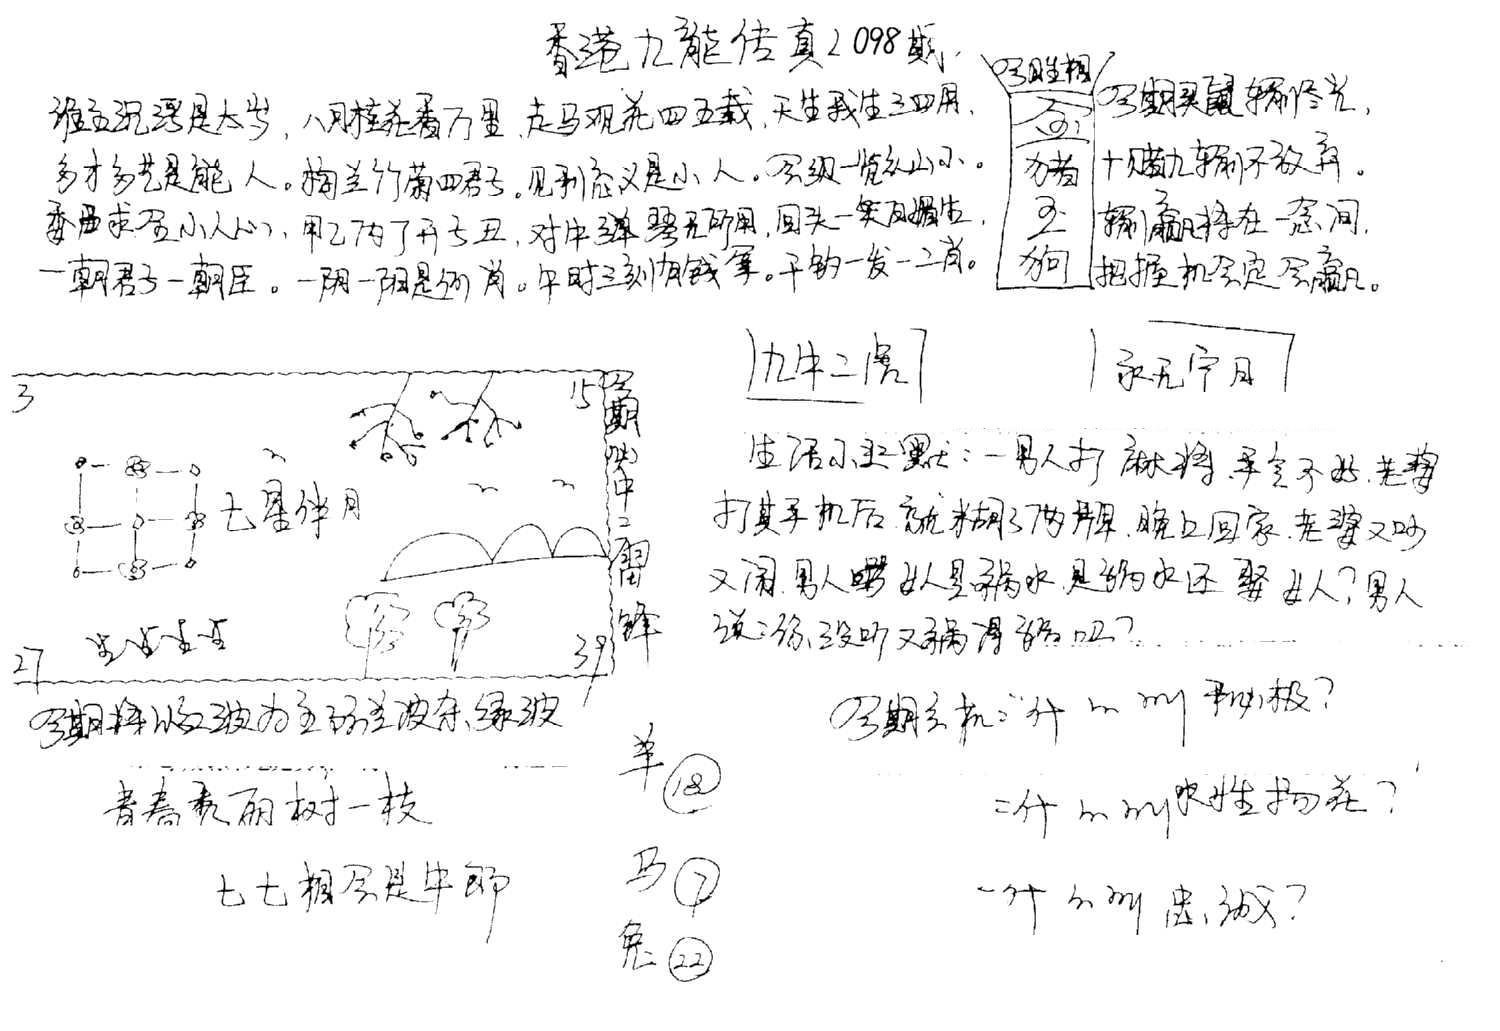 香港九龍传真2098期
谁主沉浮是太岁，八月桂花香万里，走马观花四五载，天生我生三四用，
多才多艺是能人。梅兰竹菊四君子。见利忘义是小人。会级一览众山小。
委曲求全小人心，甲乙丙丁开子丑，对牛弹琴无所用，回头一笑百媚生，
一朝君子一朝臣。一阴一阳是何肖。午时三刻有钱拿。千钧一发一二肖。
今日生相
金
猪
玉
狗
今期买鼠输尽光，
十赌九输不放弃。
输赢将在一念间，
把握机会定会赢。
九牛二虎
永无宁日
3
15
七星伴月
27
39
今期必中二雷锋
生活小幽默：一男人打麻将，手气不好，老婆
打其手机后就糊了两牌，晚上回家，老婆又吵
又闹，男人骂女人是祸水，是祸水还娶女人？男人
说：你没听又祸得福吗？
今期将以红波为主防兰波夯，绿波
青春秀丽树一枝
七七相会是牛郎
羊 18
马 7
兔 22
今期玄机：什么叫
二什么叫水性扬花？
一什么叫忠诚？